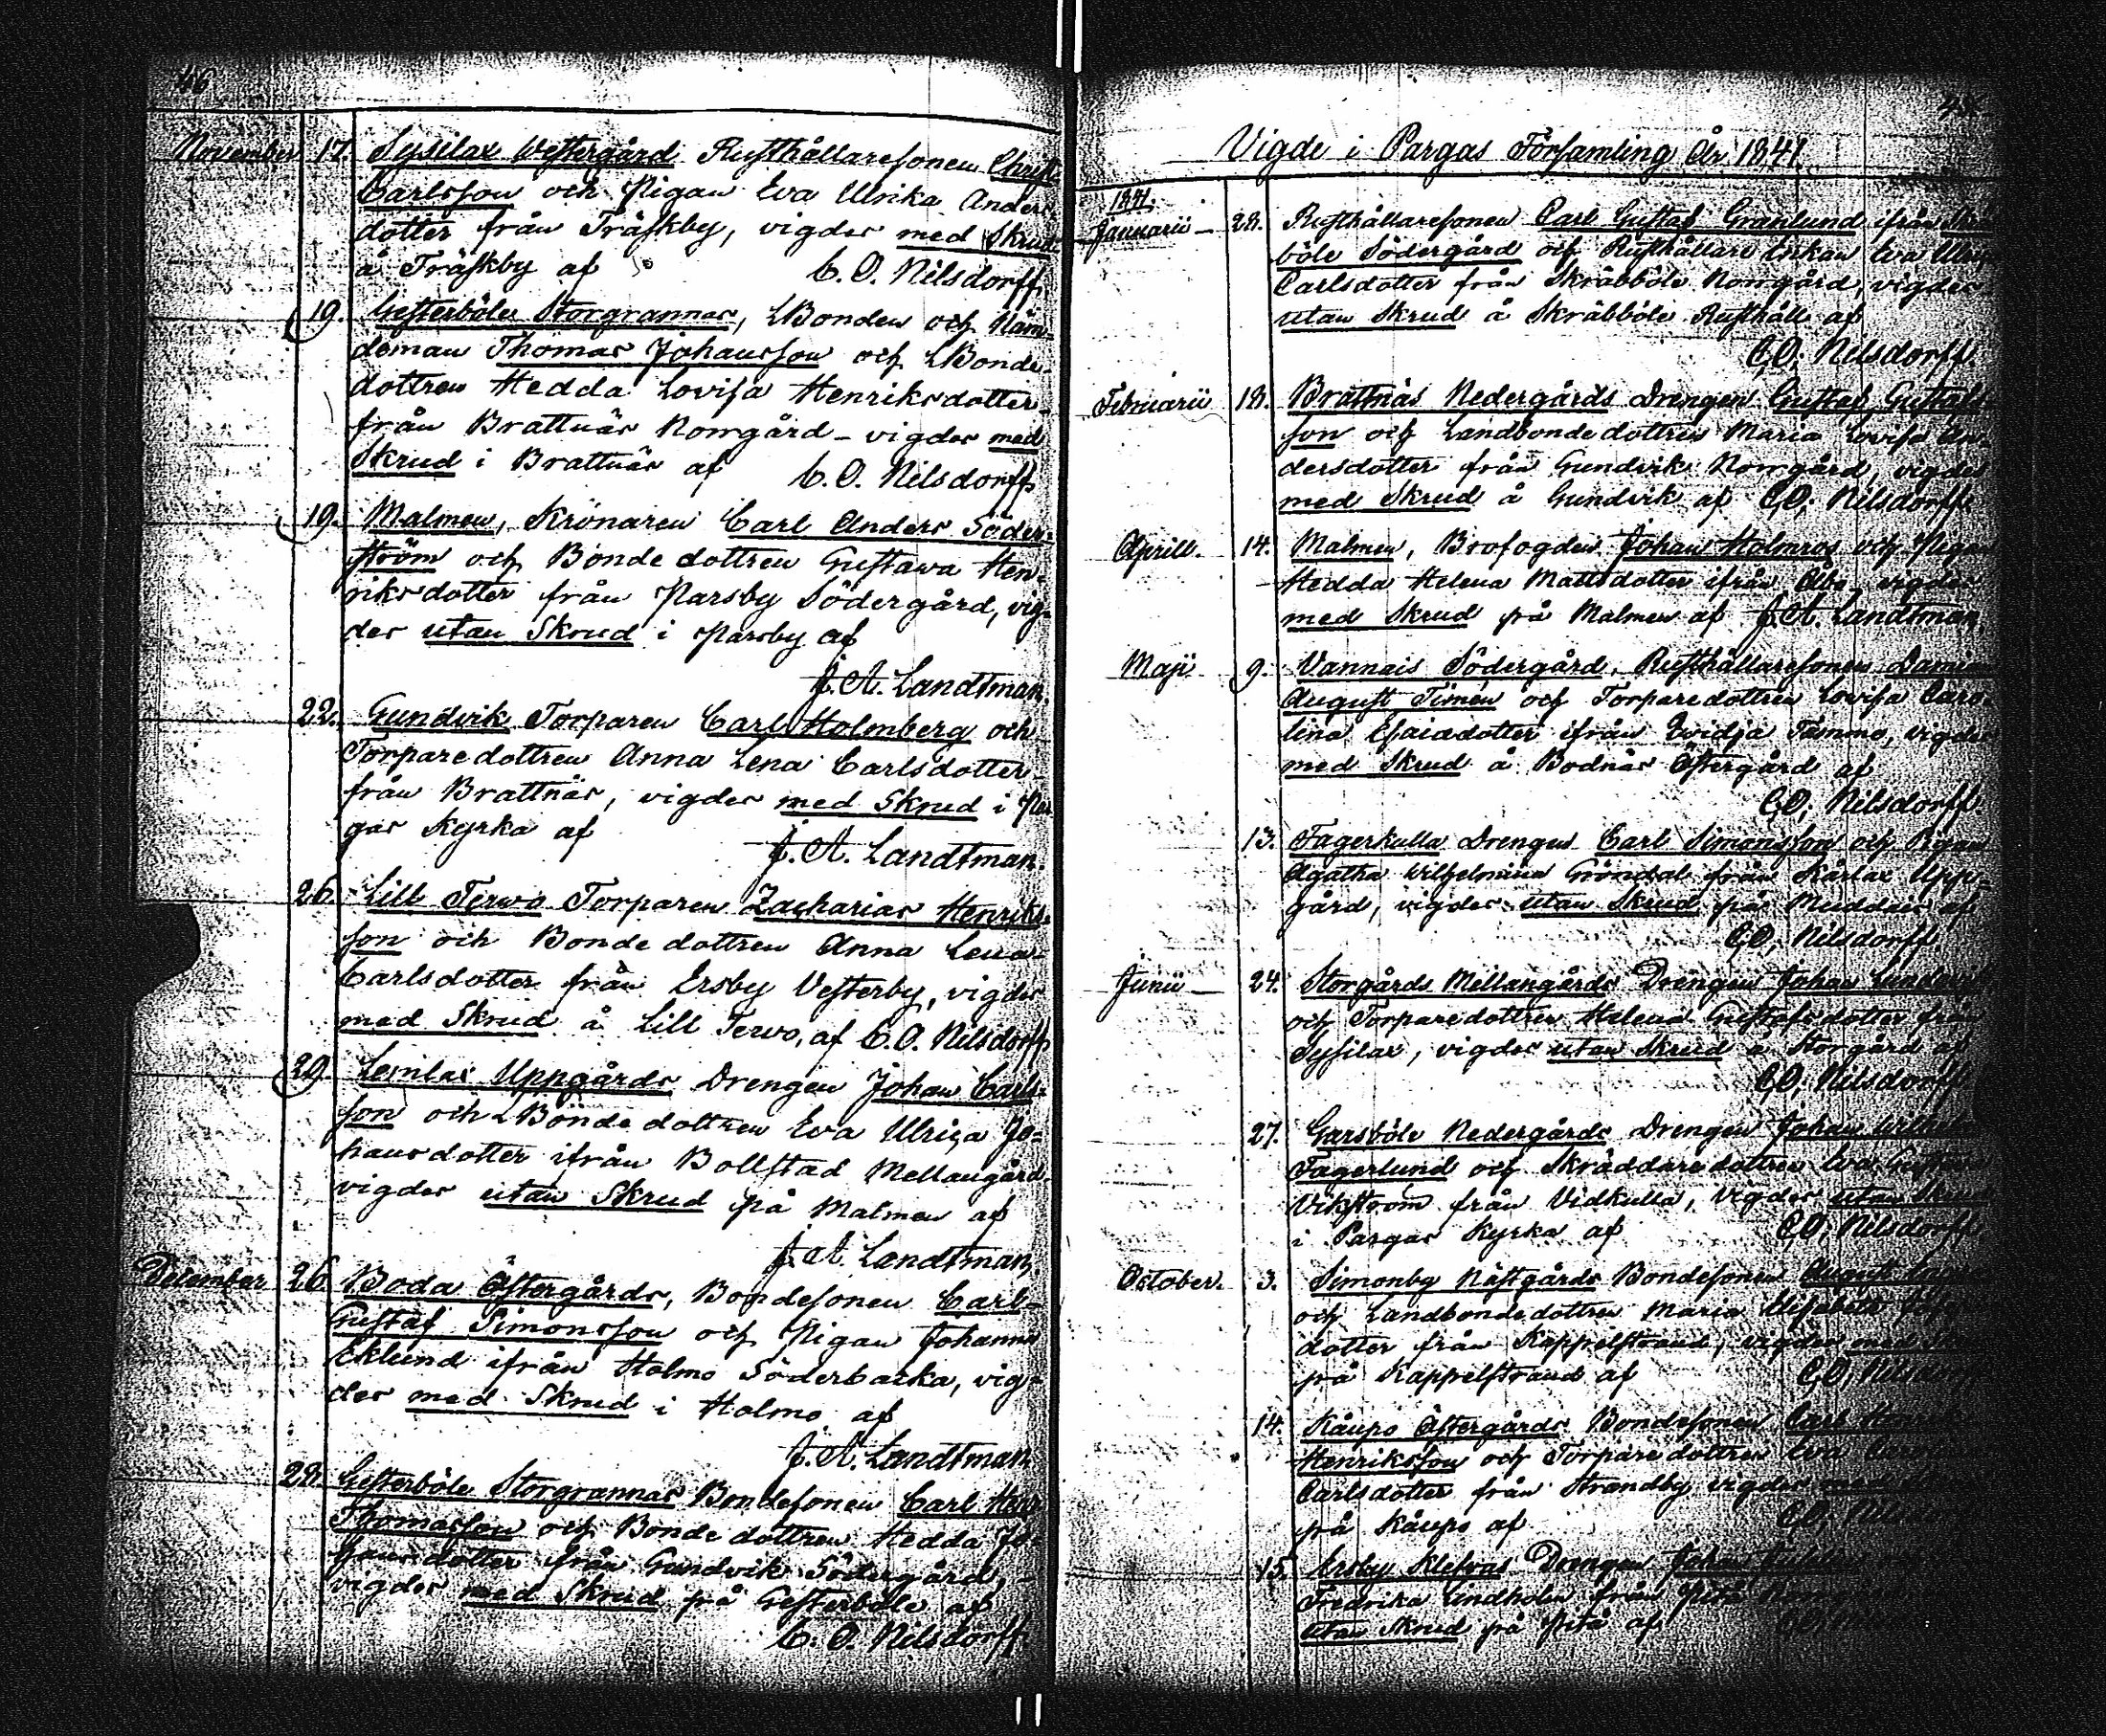 46
November 17. Sysilax Westergård Rusthållaresonen Christ.
Carlsson och Pigan Eva Ulrika Anders
dotter från Träskby, vigdes med Skrud
å Träskby af C. O. Nilsdorff
19. Gesterböle Storgrannas, LBonden och Näm-
deman Thomas Johansson och LBonde
dottren Hedda Lovisa Henriksdotter
från Brattnäs Norrgård - vigdes med
Skrud i Brattnäs af C. O. Nilsdorff
19. Malmen, Krönaren Carl Anders Söder-
ström och Bonde dottren Gustava Hen-
riksdotter från Parsby Södergård, vig-
des utan Skrud i Parsby af
J. A. Landtman.
22. Gundvik Torparen Carl Holmberg och
Torparedottren Anna Lena Carlsdotter
från Brattnäs, vigdes med Skrud i Par
gas Kyrka af
J. A. Landtman.
26. Lill Terwo Torparen Zacharias Henriks-
son och Bonde dottren Anna Lena
Carlsdotter från Ersby Vesterby, vigdes
med Skrud å Lill Terwo, af C. O. Nilsdorff
29. Lemlax Uppgårds Drengen Johan Carls-
son och LBonde dottren Eva Ulrica Jo-
hansdotter ifrån Bollstad Mellangård
vigdes utan Skrud på Malmen af
J. A. Landtman,
December 26 Boda Östergårds, Bondesonen Carl-
Gustaf Simonsson och Pigan Johanna
Eklund ifrån Holmo Söderbacka, vig-
des med Skrud i Holmo af
J. A. Landtman
28. Gesterböle Storgrannas Bondesonen Carl Henr
Thomasson och Bonde dottren Hedda Jo-
hansdotter från Gundvik Södergård,
vigdes med Skrud på Gesterböle af
C. O. Nilsdorff.
Vigde i Pargas Församling År 1841
1841.
Januarii - 28. Rusthållaresonen Carl Gustaf Granlund ifrån
böle Södergård och Rusthållare Enkan Eva Ulrica
Carlsdotter från Skräbböle Norrgård, vigdes
utan Skrud å Skräbböle Rusthåll af
C,O, Nilsdorff
Februarii 18. Brattnäs Nedergårds Drengen Gustaf Gustafs
son och Landbonde dottren Maria Lovisa An-
dersdotter från Gundvik Norrgård, vigdes
med Skrud å Gundvik af C,O, Nilsdorff
Aprill. 14. Malmen, Brofogden Johan Holmros och Pigan
Hedda Helena Mattsdotter ifrån Åbo vigdes
med Skrud på Malmen af J. A. Landtman,
Maji 9. Vannais Södergård, Rusthållaresonen
August Simén och Torparedottren Lovisa Caro-
lina Esaiædotter ifrån Qvidja Tammo, vigdes
med Skrud å Bodnäs Östergård af
C,O, Nilsdorff
13. Fagerkulla Drengen Carl Simonsson och Pigan
Agatha Wilhelmina Gröndal från Kårlax Upp-
gård, vigdes utan Skrud på Muddais af
C,O, Nilsdorff
Junii - 24. Storgårds Mellangårds Drengen Johan
och Torparedottren Helena Gustafsdotter från
Sysilax, vigdes utan Skrud å Storgård af
C,O, Nilsdorff
27. Garsböle Nedergårds Drengen Johan Wilhelm
Fagerlund och Skräddare dottren Eva
Vikström från Vidkulla, Vigdes utan Skrud
i Pargas Kyrka af C,O, Nilsdorff
October. 3. Simonby Nästgårds Bondesonen August
och Landbonde dottren Maria Elisabeta
dotter från Kappelstrand, vigdes med
på Kappelstrand af C,O, Nilsdorff
14. Kåupo Östergårds Bondesonen Carl
Henriksson och Torpare dottren Eva
Carlsdotter från Strandby vigdes
på Kåupo af C,O,
15. Ersby Klefvas Drengen Johan
Fredrika Lindholm från
utan Skrud på af